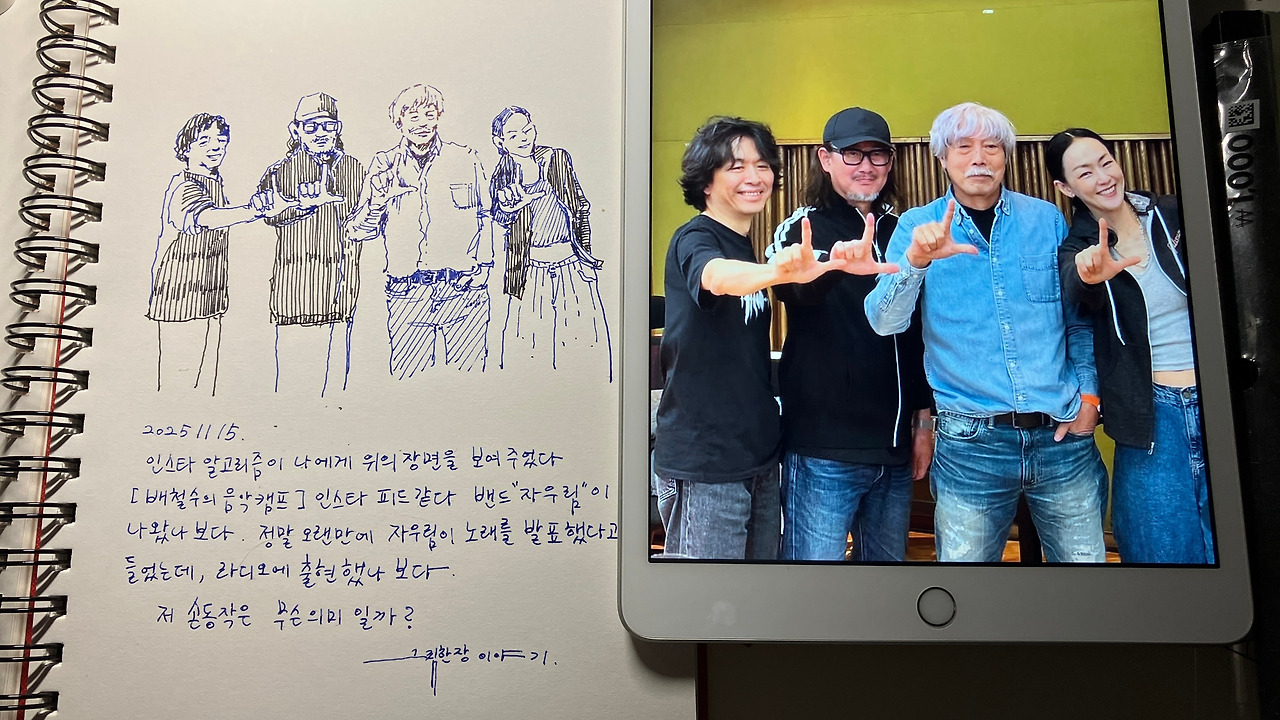 2025 11 15.
인스타 알고리즘이 나에게 위의 장면을 보여주었다
[배철수의 음악캠프] 인스타 피드같다 밴드"자우림"이
나왔나보다. 정말 오랜만에 자우림이 노래를 발표했다고
들었는데, 라디오에 출현했나 보다.
저 손동작은 무슨의미 일까?
그림한장 이야기.
#1000